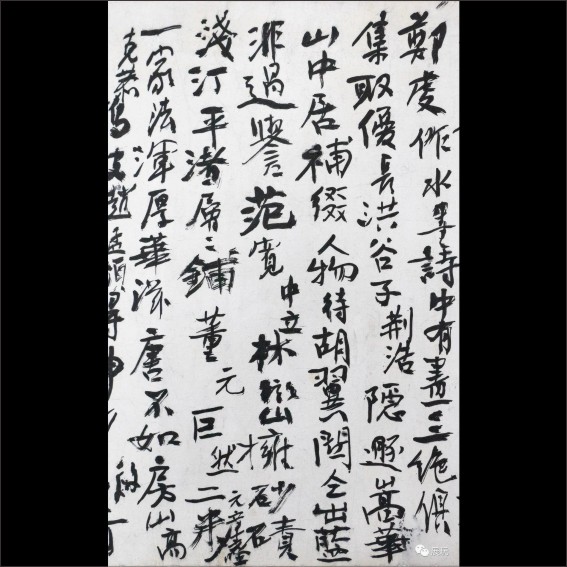 鄭虔作水墨詩中有畫三絕俱
集取優長洪谷子荆浩隱遯嵩華
山中居補綴人物待胡翼關仝出藍
非過譽范寬中立林巒擁沙磧
淺汀平渚層々鋪董元巨然二米元章
一家法渾厚華滋唐不如房山高
克恭 趙孟頫